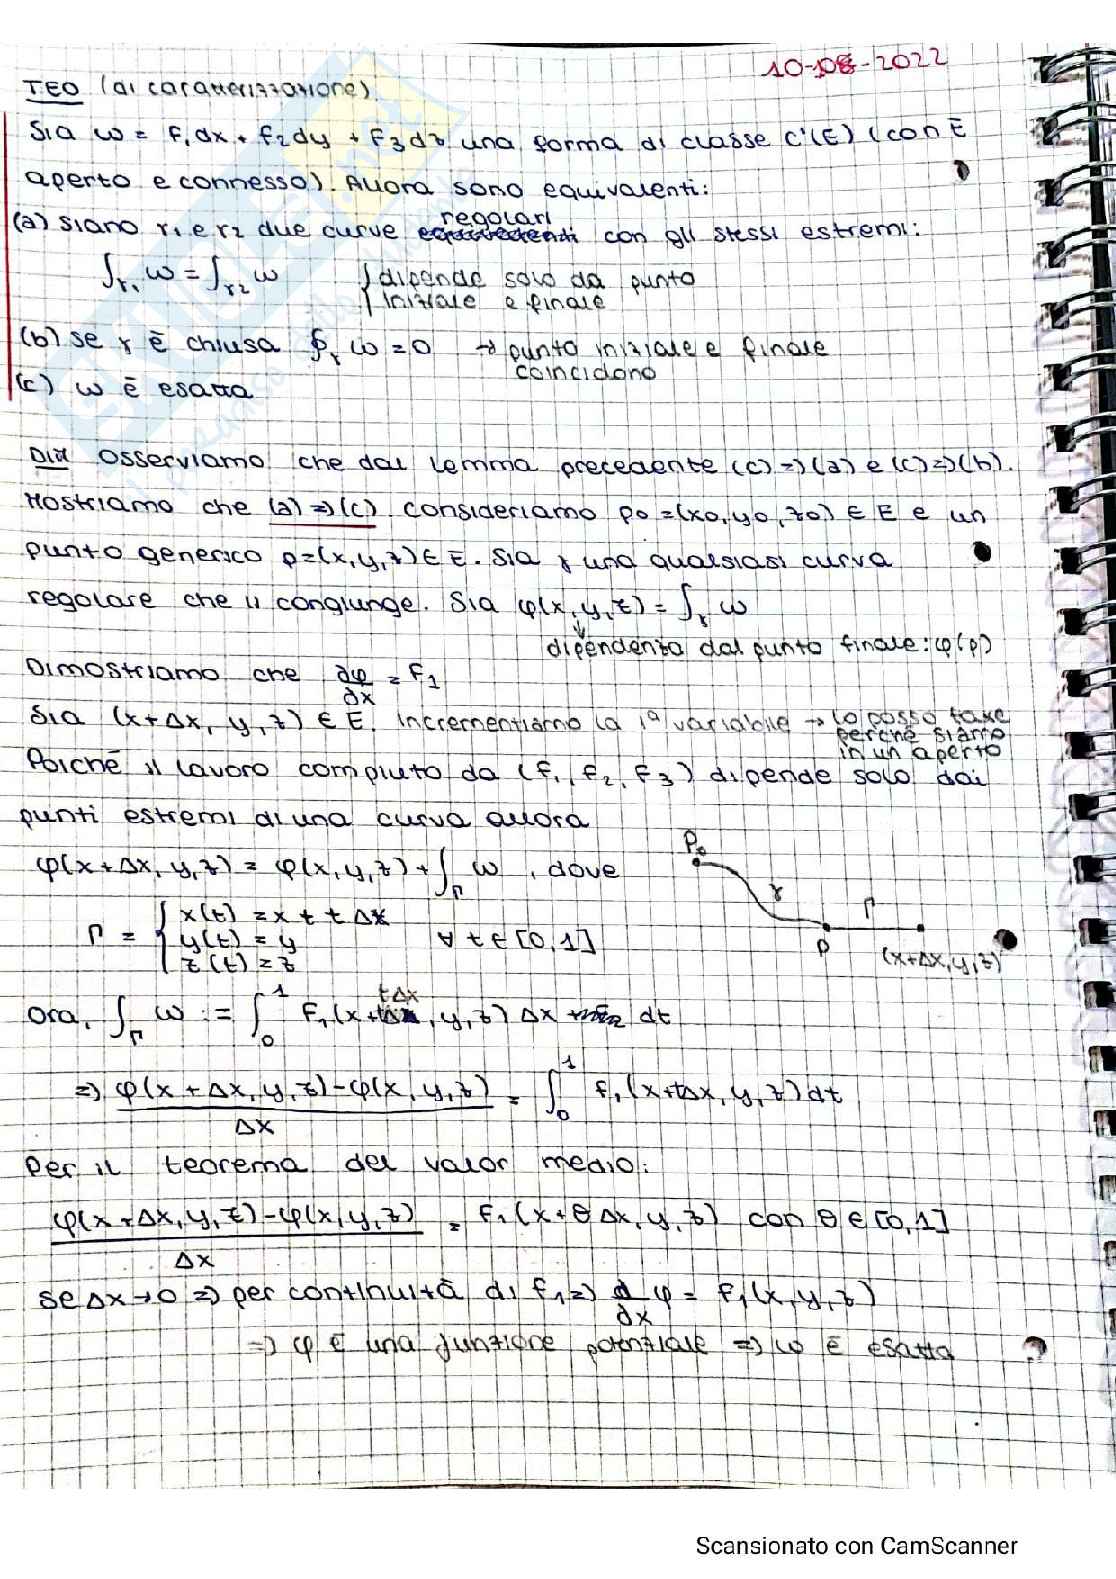 10-08-2022
TEO (di caratterizzazione)
Sia ω = F₁dx + F₂dy + F₃dz una forma di classe C¹(E) (con E
aperto e connesso). Allora sono equivalenti:
(a) siano γ₁ e γ₂ due curve regolari con gli stessi estremi:
∫γ₁ ω = ∫γ₂ ω { dipende solo da punto
iniziale e finale
(b) se γ è chiusa ∮γ ω = 0 → punto iniziale e finale
coincidono
(c) ω è esatta
DIM Osserviamo che dal lemma precedente (c)=>(a) e (c)=>(b).
Mostriamo che (a)=>(c). Consideriamo p₀=(x₀,y₀,z₀) ∈ E e un
punto generico p=(x,y,z) ∈ E. Sia γ una qualsiasi curva
regolare che li congiunge. Sia φ(x,y,z) = ∫γ ω
dipendenza dal punto finale: φ(p)
Dimostriamo che ∂φ/∂x = F₁
Sia (x+Δx, y, z) ∈ E. Incrementiamo la 1ª variabile → lo posso fare
perchè siamo
in un aperto
Poichè il lavoro compiuto da (F₁, F₂, F₃) dipende solo dai
punti estremi di una curva allora
φ(x+Δx, y, z) = φ(x,y,z) + ∫Γ ω, dove
Γ = { x(t) = x + tΔx
y(t) = y ∀ t ∈ [0,1]
z(t) = z
P₀ γ Γ
P (x+Δx,y,z)
Ora, ∫Γ ω := ∫₀¹ F₁(x+tΔx, y, z) Δx dt
=> φ(x+Δx,y,z)-φ(x,y,z)/Δx = ∫₀¹ F₁(x+tΔx, y, z) dt
Per il teorema del valor medio:
φ(x+Δx,y,z)-φ(x,y,z)/Δx = F₁(x+θΔx, y, z) con θ ∈ [0,1]
se Δx→0 => per continuità di F₁ => ∂/∂x φ = F₁(x,y,z)
=> φ è una funzione potenziale => ω è esatta
Scansionato con CamScanner